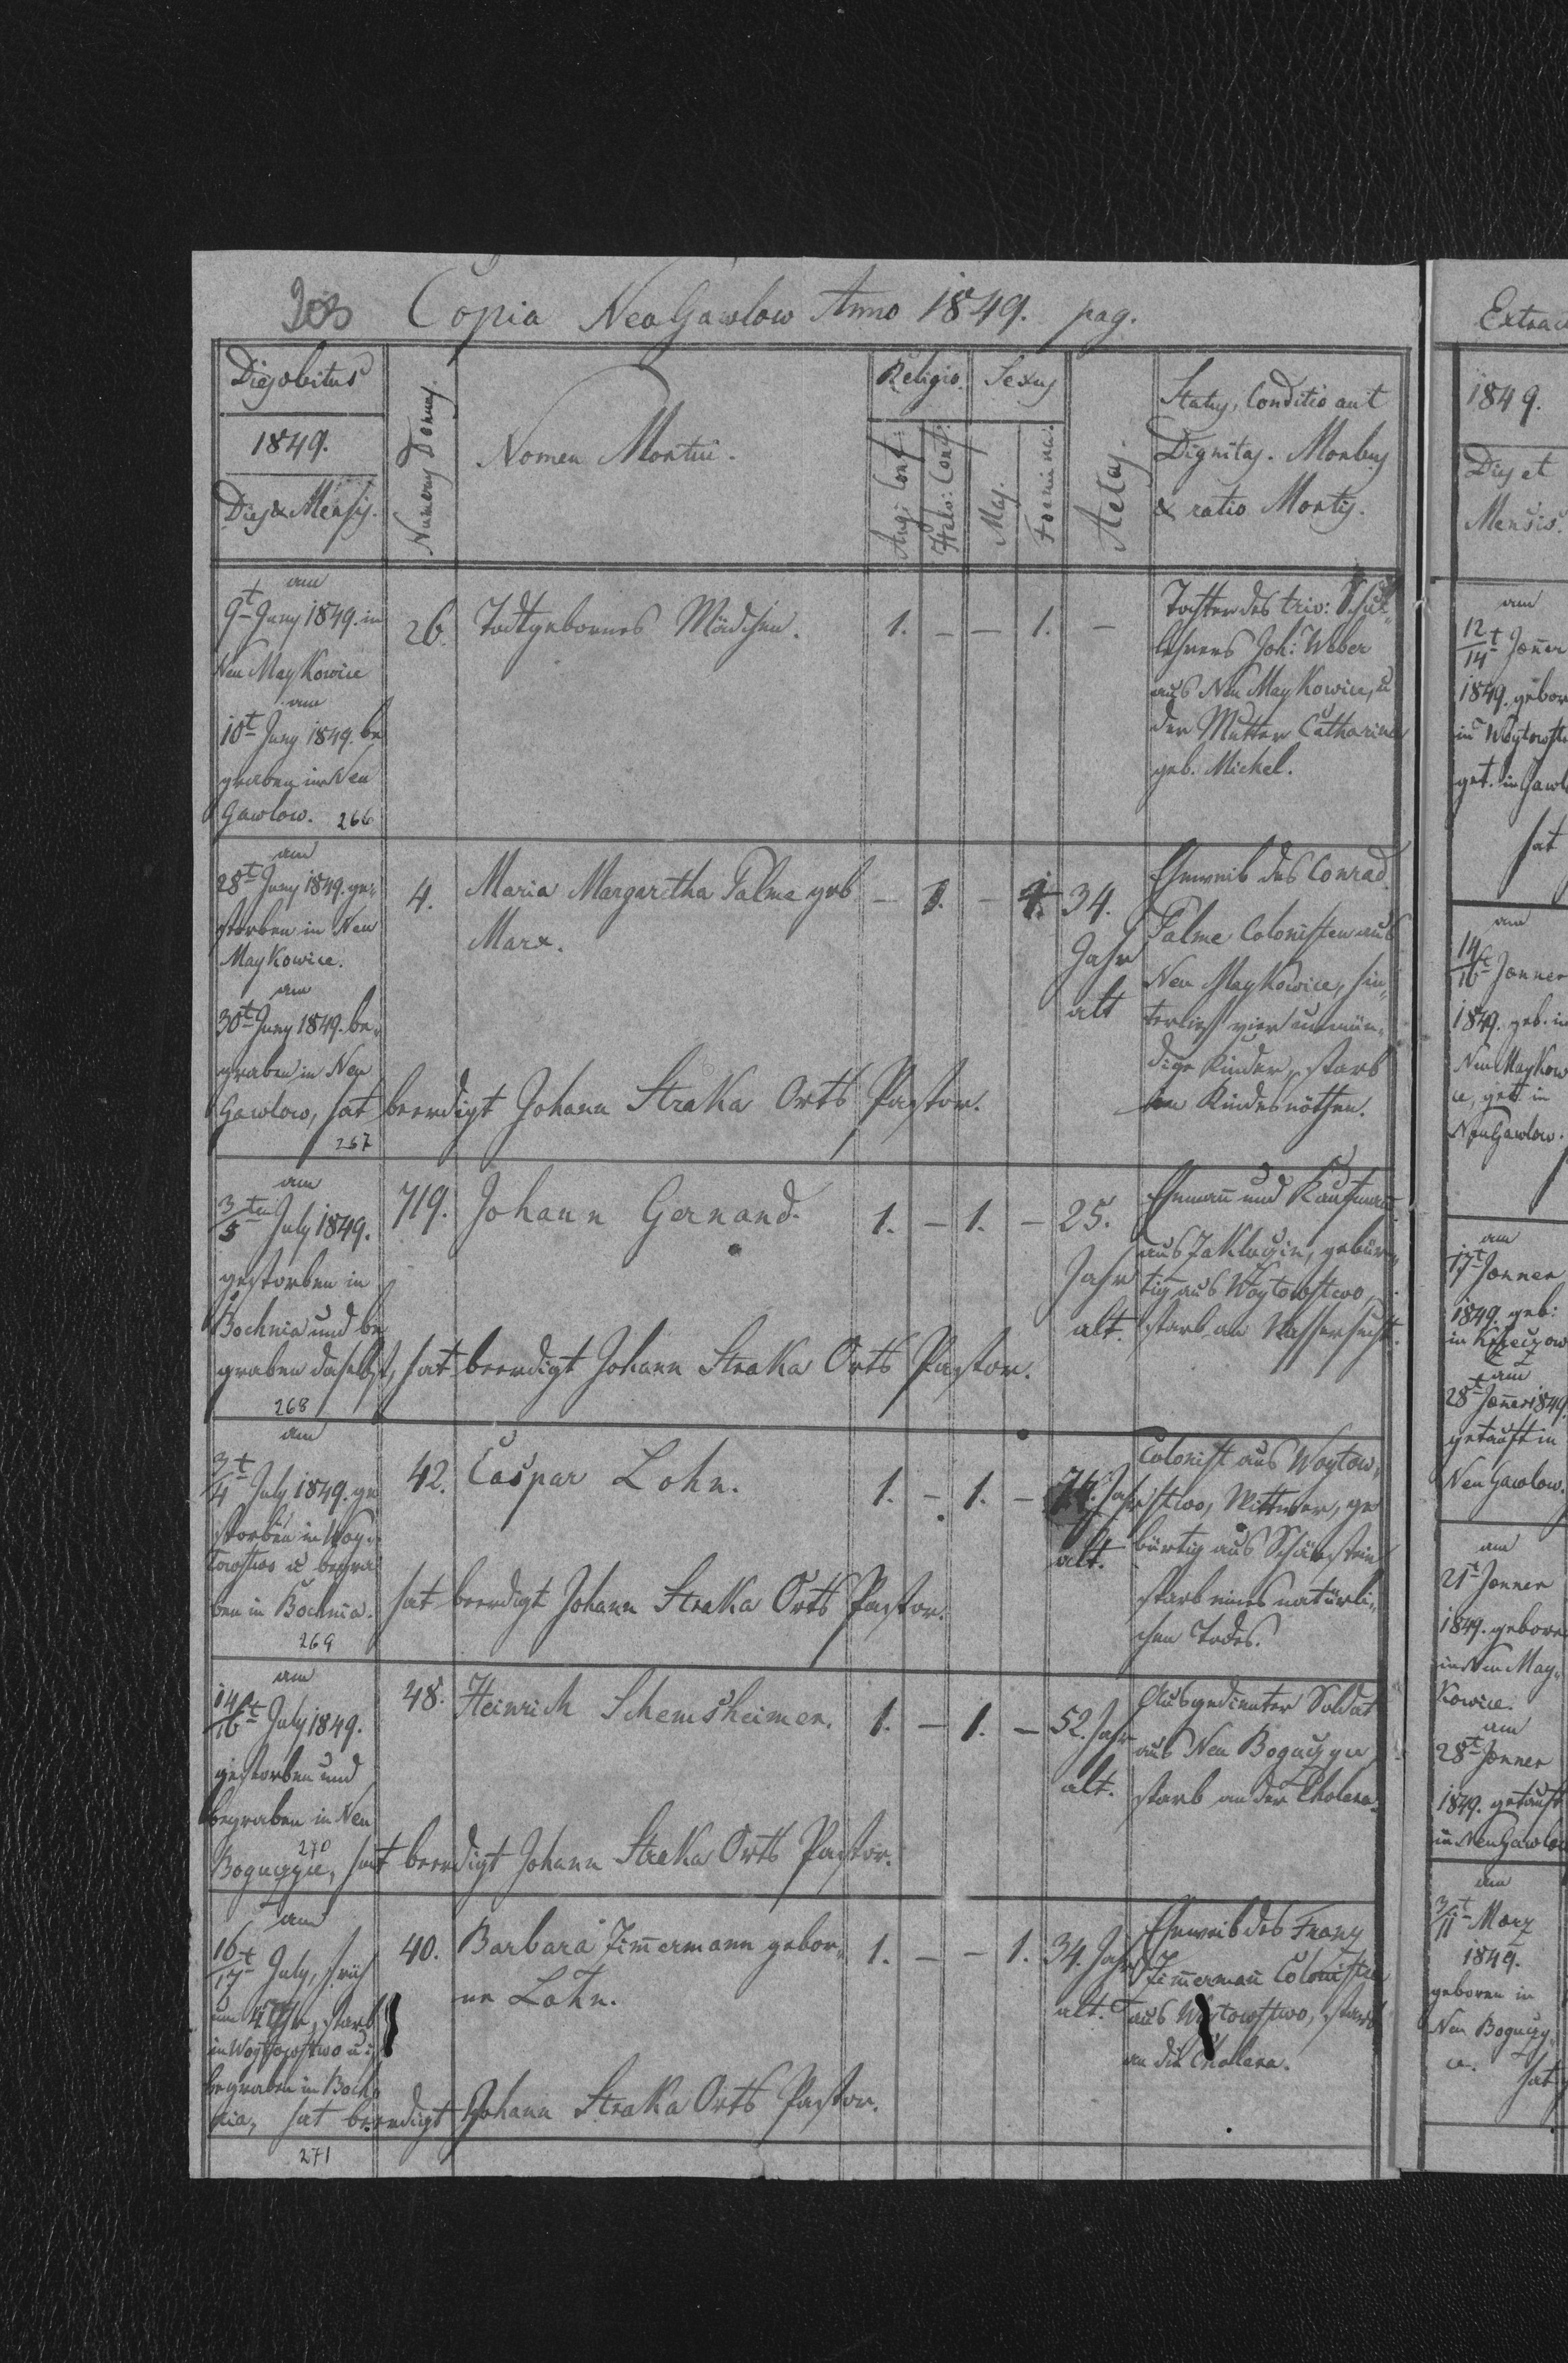 Copia NeuGawlow Anno 1849. pag.
Dies obitus
1849.
Dies & Mensis.
Numerus Domus.
Nomen Mortui.
Religio.
Aug: Conf:
Helv: Conf:
Sexus
Mas.
Foeminin:
Aetas.
Status, Conditio aut
Dignitas. Morbus
& ratio Mortis.
am
9t Juny 1849. in
Neu Maykowice
am
10t Juny 1849. be
graben in Neu
Gawlow. 266
26.
Todtgebornes Mädchen.
1. – – 1. –
Tochter des triv: Schul-
lehrers Joh: Weber
aus Neu Maykowice, u
der Mutter Catharina
geb. Michel.
am
28t Juny 1849. ge-
storben in Neu
Maykowice.
am
30t Juny 1849. be-
graben in Neu
Gawlow, hat beerdigt Johann Straka Orts Pastor.
267
4.
Maria Margaretha Palme geb
Marx.
– 1. – 1. 34.
Jahr
alt
Eheweib des Conrad
Palme Colonisten aus
Neu Maykowice, hin-
terließ vier unmün-
dige Kinder, starb
in Kindesnöthen.
am
3/5ten July 1849.
gestorben in
Bochnia und be
graben daselbst, hat beerdigt Johann Straka Orts Pastor.
268
719.
Johann Gernand.
1. – 1. – 25.
Jahr
alt.
Ehemañ und Kaufmañ
aus Zakluczin, gebür-
tig aus Woytowstwo,
starb an Wassersucht.
am
3/4t July 1849. ge
storben in Woy-
towstwo u begra
ben in Bochnia. hat beerdigt Johann Straka Orts Pastor.
269
42.
Caspar Lohn.
1. – 1. – 74. Jahr
alt.
Colonist aus Woytow-
stwo, Wittwer, ge
bürtig aus
starb eines natürli-
chen Todes.
am
14/16t July 1849.
gestorben und
begraben in Neu
270
Boguczyce, hat beerdigt Johann Straka Orts Pastor.
48.
Heinrich Schemsheimer.
1. – 1. – 52. Jahr
alt.
Ausgedienter Soldat
aus Neu Boguczyce
starb an der Cholera.
am
16/17t July, früh
um 4 Uhr, starb
in Woytowstwo u:
begraben in Boch-
nia, hat beerdigt Johann Straka Orts Pastor.
271
40.
Barbara Zim̄ermann gebor-
ne Lohn.
1. – – 1. 34. Jahr
alt.
Eheweib des Franz
Zim̄ermañ Colonisten
aus Woytowstwo, starb
an die Cholera.
1849.
Dies et
Mensis.
am
12/14t Jäner
1849. gebor
in Woytowst
get. in Gawl
hat
am
14/16t Jänner
1849. geb. in
Neu Maykow
ce, get. in
NeuGawlow.
am
17t Jänner
1849. geb:
am
28t Jäner 1849.
getauft in
Neu Gawlow.
am
21t Jänner
1849. gebore
in Neu May-
kowice.
am
28t Jänner
1849. getauft
in NeuGawlow
am
3/11t März
1849.
geboren in
Neu Boguczy
ce. hat